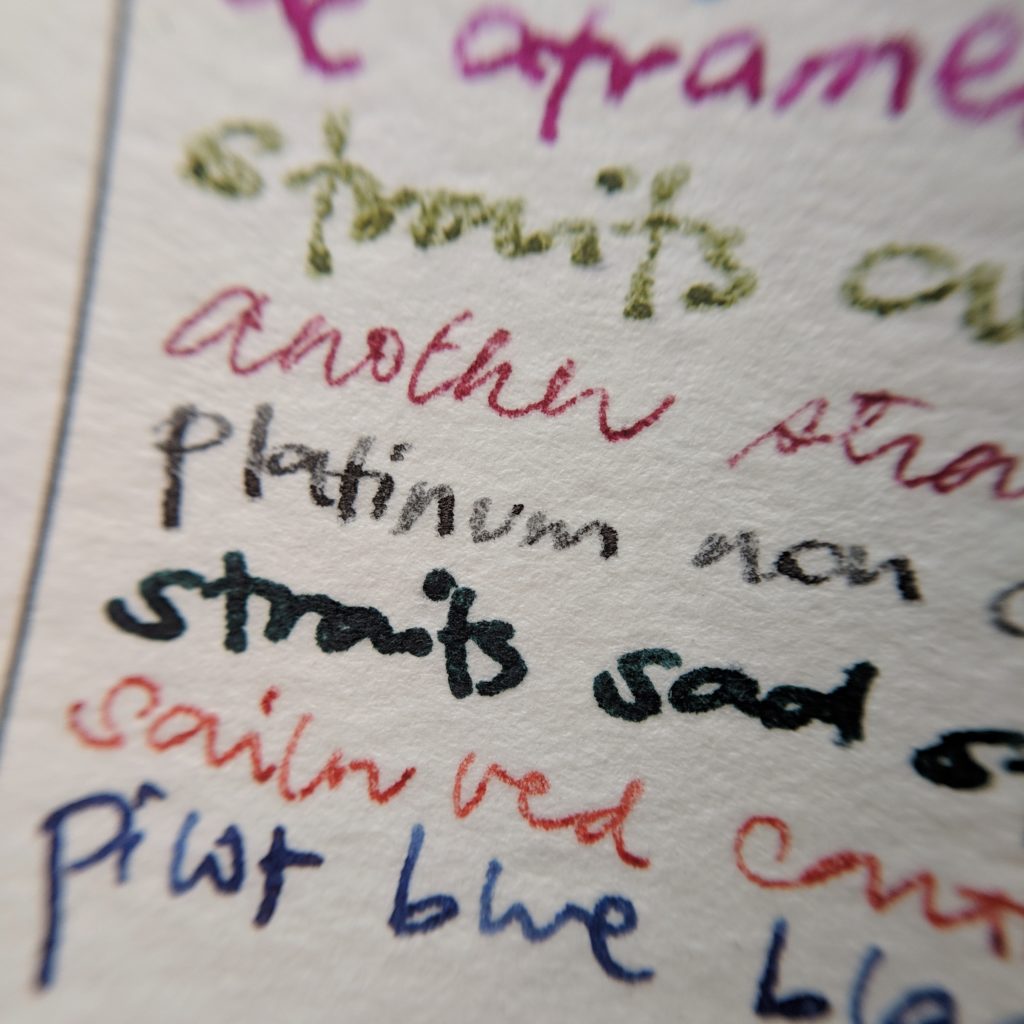 atrame
straits
another stra
platinum non
straits sad s
sailor red cart
pilot blue bla